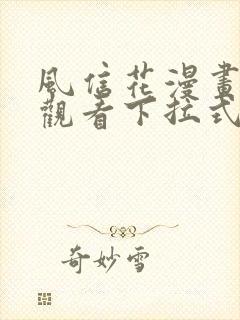 風信花漫畫
觀看下拉式
奇妙雪